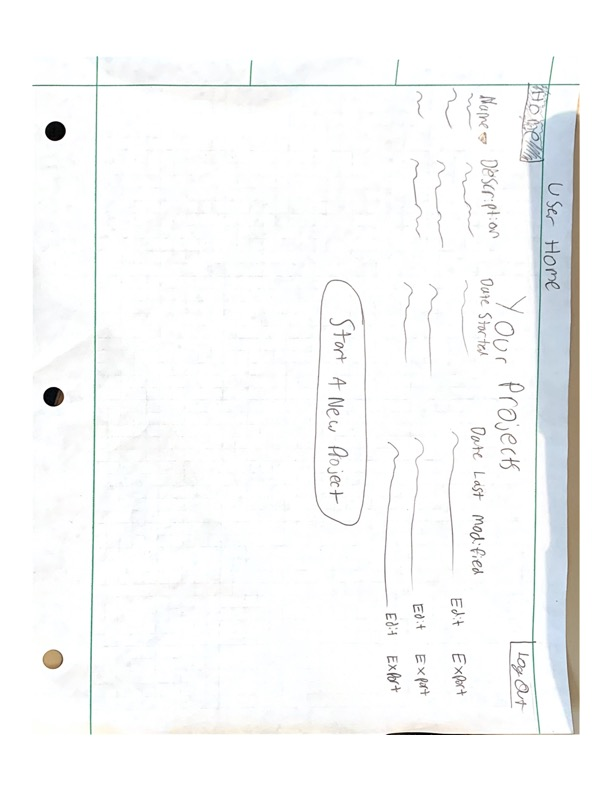 User Home
Home
Log Out
Your Projects
Name Description Date Started Date Last modified
Edit Export
Edit Export
Edit Export
Start A New Project